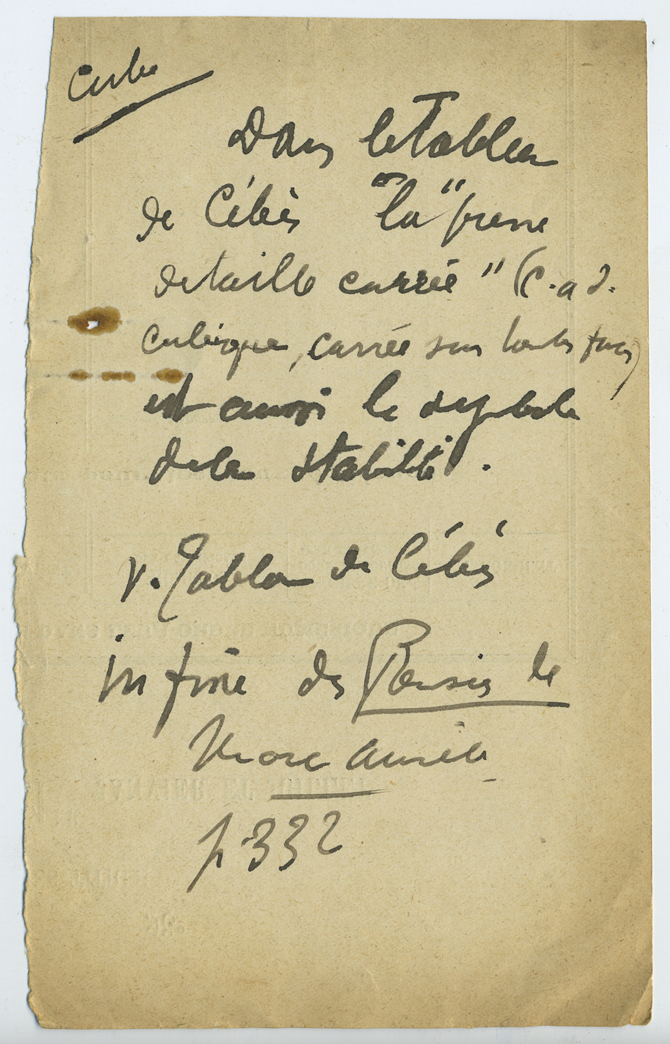 Cube
Dans le Tableau
de Cébès "la" pierre
de taille carrée" (c. a d.
cubique, carrée sur toutes faces)
est aussi le symbole
de la stabilité.
v. Tableau de Cébès
in fine des Pensées de
Marc Aurèle
p. 332